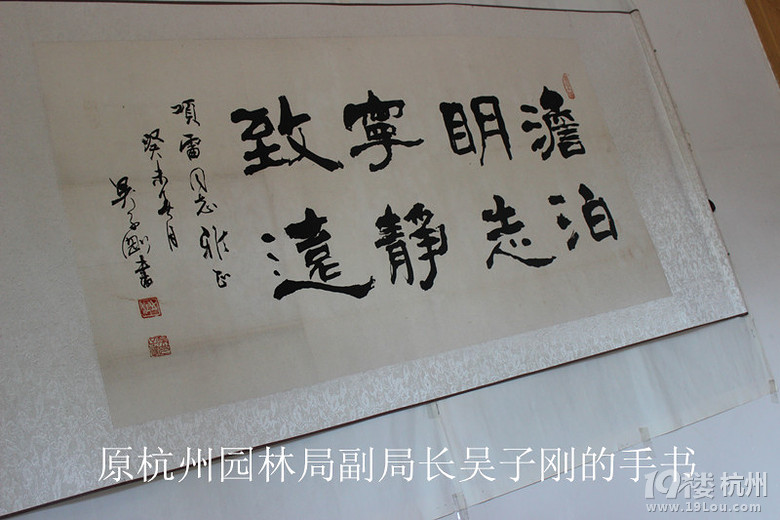 澹泊
明志
寧靜
致遠
項雷同志雅正
癸未年春月
吴子刚書
原杭州园林局副局长吴子刚的手书
19楼杭州
www.19lou.com